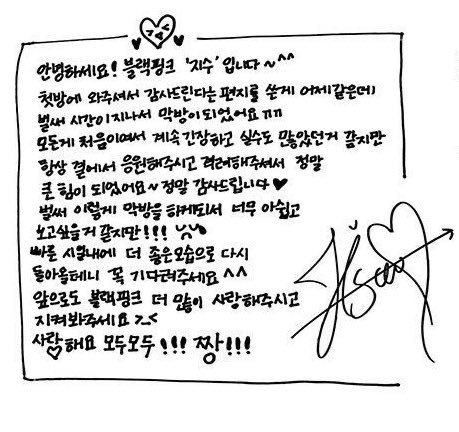 안녕하세요! 블랙핑크 '지수' 입니다 ~^^
첫방에 와주셔서 감사드린다는 편지를 쓴게 어제같은데
벌써 시간이 지나서 막방이 되었어요 ㅠㅠ
모든게 처음이여서 계속 긴장하고 실수도 많았던거 같지만
항상 곁에서 응원해주시고 격려해주셔서 정말
큰 힘이 되었어요~ 정말 감사드립니다♥
벌써 이렇게 막방을 하게되서 너무 아쉽고
보고싶을거 같지만!!!
빠른 시일내에 더 좋은모습으로 다시
돌아올테니 꼭 기다려주세요^^
앞으로도 블랙핑크 더 많이 사랑해주시고
지켜봐주세요 >_<
사랑♡해요 모두모두!!! 짱!!!
Jisoo